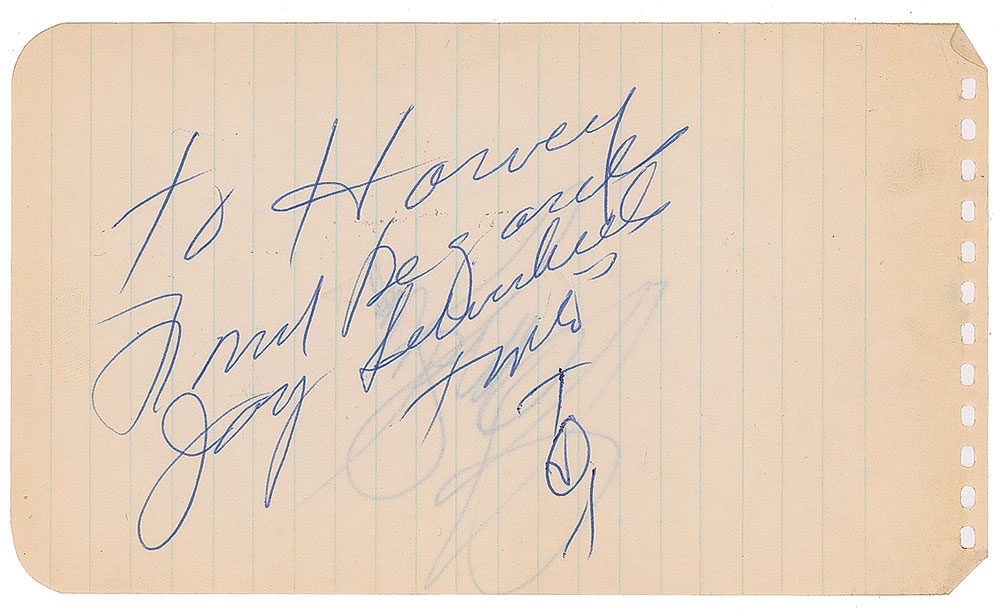 To Harvey
Fond Regards
Jay Silverheels
Tonto